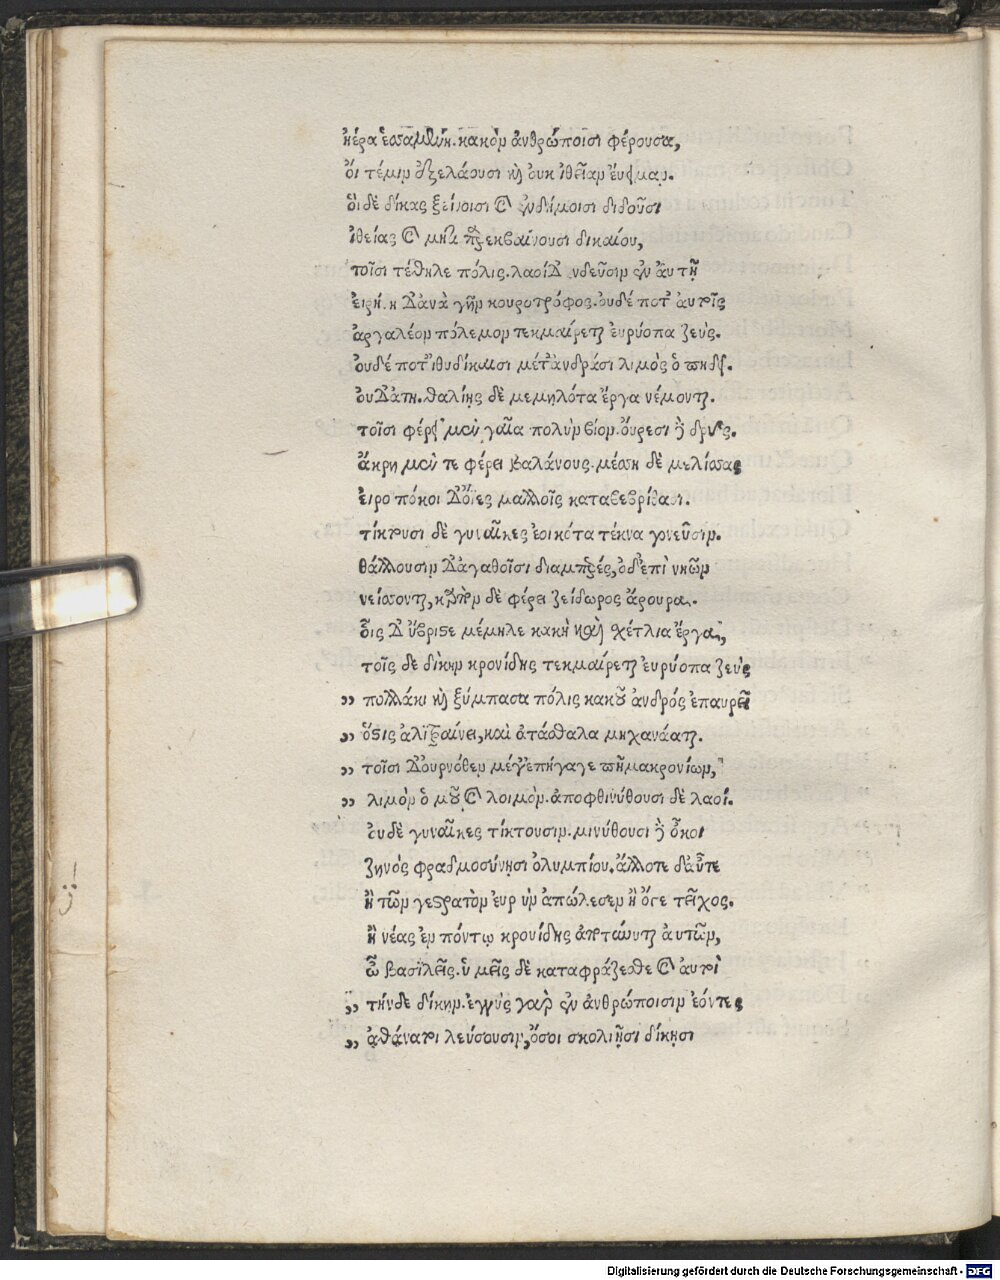 ἠέρα ἑσσαμένη. κακὸν ἀνθρώποισι φέρουσα,
ὅι τέμιν ἐξελάουσι καὶ ὀυκ ἰθεῖαν ἔνειμαν.
ὃι δὲ δίκας ξείνοισι καὶ ἐνδήμοισι διδοῦσι
ἰθείας καὶ μήτι παρεκβαίνουσι δικαίου,
τοῖσι τέθηλε πόλις. λαοὶ δ' ἀνθεῦσιν ἐν ἀυτῆ
ἐιρήνη δ' ἀνὰ γῆν κουροτρόφος. ὀυδέ ποτ' ἀυτοῖς
ἀργαλέον πόλεμον τεκμαίρεται ἐυρύοπα ζεύς.
ὀυδέ ποτ' ἰθυδίκαισι μέτ' ἀνδράσι λιμὸς ὀπηδεῖ.
ὀυδ' ἄτη. θαλίης δὲ μεμηλότα ἔργα νέμονται.
τοῖσι φέρει μὲν γαῖα πολὺν βίον. ὄυρεσι δὲ δρῦς.
ἄκρη μέν τε φέρει βαλάνους. μέσση δὲ μελίσσας
ἐιροπόκοι δ' ὄϊες μαλλοῖς καταβεβρίθασι.
τίκτουσι δὲ γυναῖκες ἐοικότα τέκνα γονεῦσιν.
θάλλουσιν δ' ἀγαθοῖσι διαμπερές, ὀδ' ἐπὶ νηῶν
νείσονται, καρπὸν δὲ φέρει ζείδωρος ἄρουρα.
ὃις δ' ὕβρις τε μέμηλε κακὴ καὶ σχέτλια ἔργα,
τοῖς δὲ δίκην κρονίδης τεκμαίρεται ἐυρύοπα ζεὺς
„ πολλάκι καὶ ξύμπασα πόλις κακοῦ ἀνδρός ἐπαυρεῖ
„ ὅστις ἀλιτραίνει, καὶ ἀτάσθαλα μηχανάαται.
„ τοῖσι δ' ὀυρνόθεν μέγ' ἐπήγαγε πῆμα κρονίων,
„ λιμὸν ὁμοῦ καὶ λοιμὸν. ἀποφθινύθουσι δὲ λαοί.
ὀυδὲ γυναῖκες τίκτουσιν. μινύθουσι δὲ ὄικοι
ζηνὸς φραδμοσύνησι ὀλυμπίου. ἄλλοτε δ' αὖτε
ἢ τῶν γε στρατὸν ἐυρὺν ἀπώλεσεν ἢ ὅγε τεῖχος.
ἢ νέας ἐν πόντῳ κρονίδης ἀποτίνυται ἀυτῶν,
ὦ βασιλεῖς. ὑμεῖς δὲ καταφράζεσθε καὶ ἀυτοὶ
„ τήνδε δίκην. ἐγγὺς γὰρ ἐν ἀνθρώποισιν ἐόντες
„ ἀθάνατοι λεύσουσιν, ὅσοι σκολιῆσι δίκησι
Digitalisierung gefördert durch die Deutsche Forschungsgemeinschaft - DFG